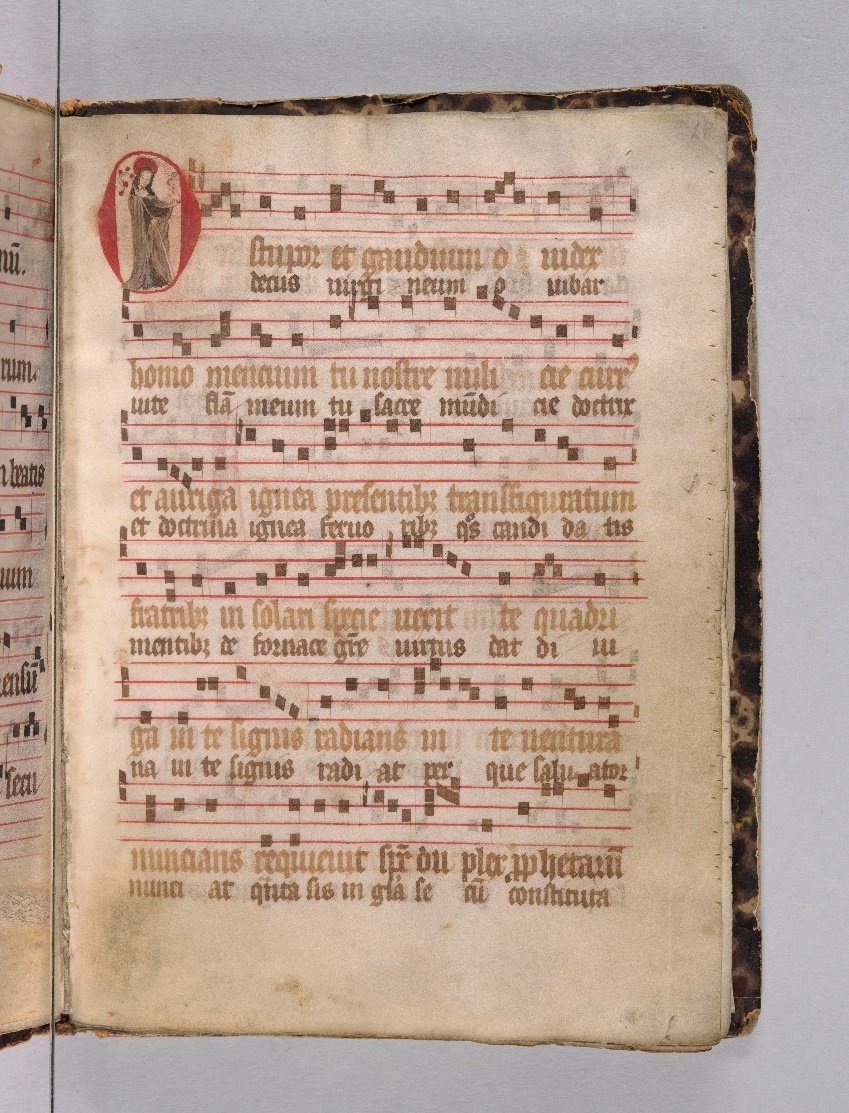 nū.
rum.
n bratis
uum
ensū
secu
O stupor et gaudium o iudex
decus uirgineum o iubar
homo mencium tu nostre mili cie curr9
uite flā meum tu sacre mūdi cie doctrix
et auriga ignea presentibꝫ transfiguratum
et doctrina ignea feruo ribꝫ qͦs candi da tis
fratribꝫ in solari specie uexit in te quadri
mentibꝫ de fornace grē uirtus dat di ui
ga in te signis radians in te uentura
na in te signis radi at per que salu ator
nuncians requieuit spr̄ du plex ꝓphetarū
nunci at qn̄ta sis in grā se cū constituta